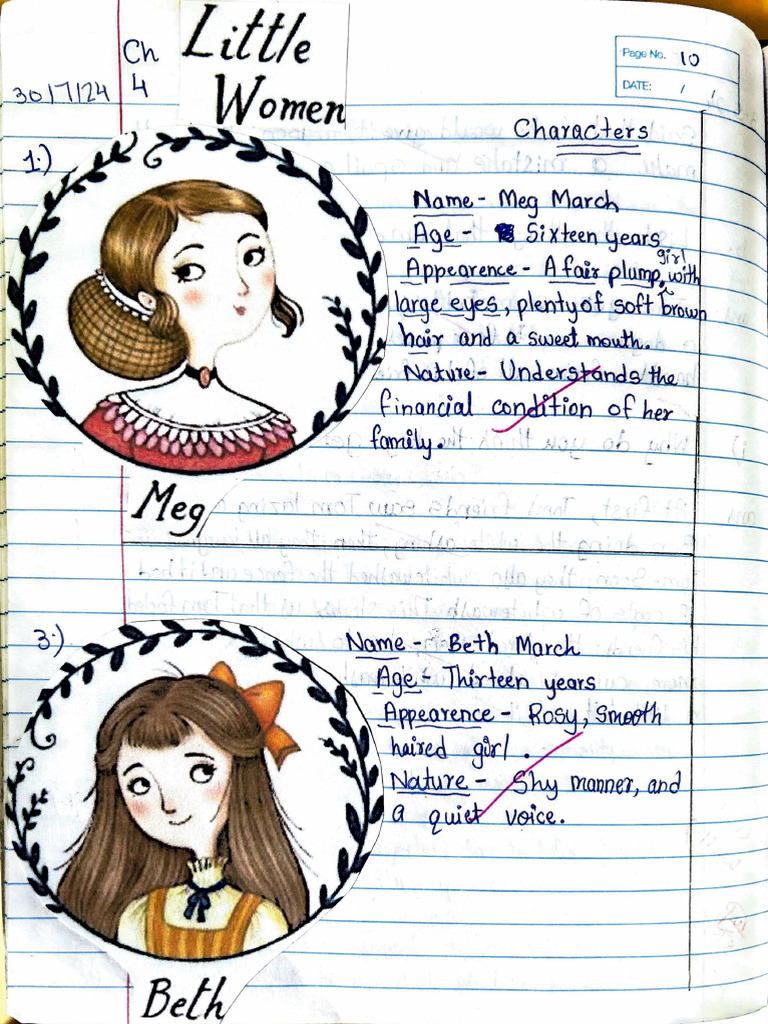 Little
Women
Ch
4
30/7/24
Page No. 10
DATE: / /
Characters
1.)
Name - Meg March
Age - Sixteen years
Appearence - A fair plump girl with
large eyes, plenty of soft brown
hair and a sweet mouth.
Nature - Understands the
financial condition of her
family.
Meg
3.)
Name - Beth March
Age - Thirteen years
Appearence - Rosy, Smooth
haired girl.
Nature - Shy manner, and
a quiet voice.
Beth